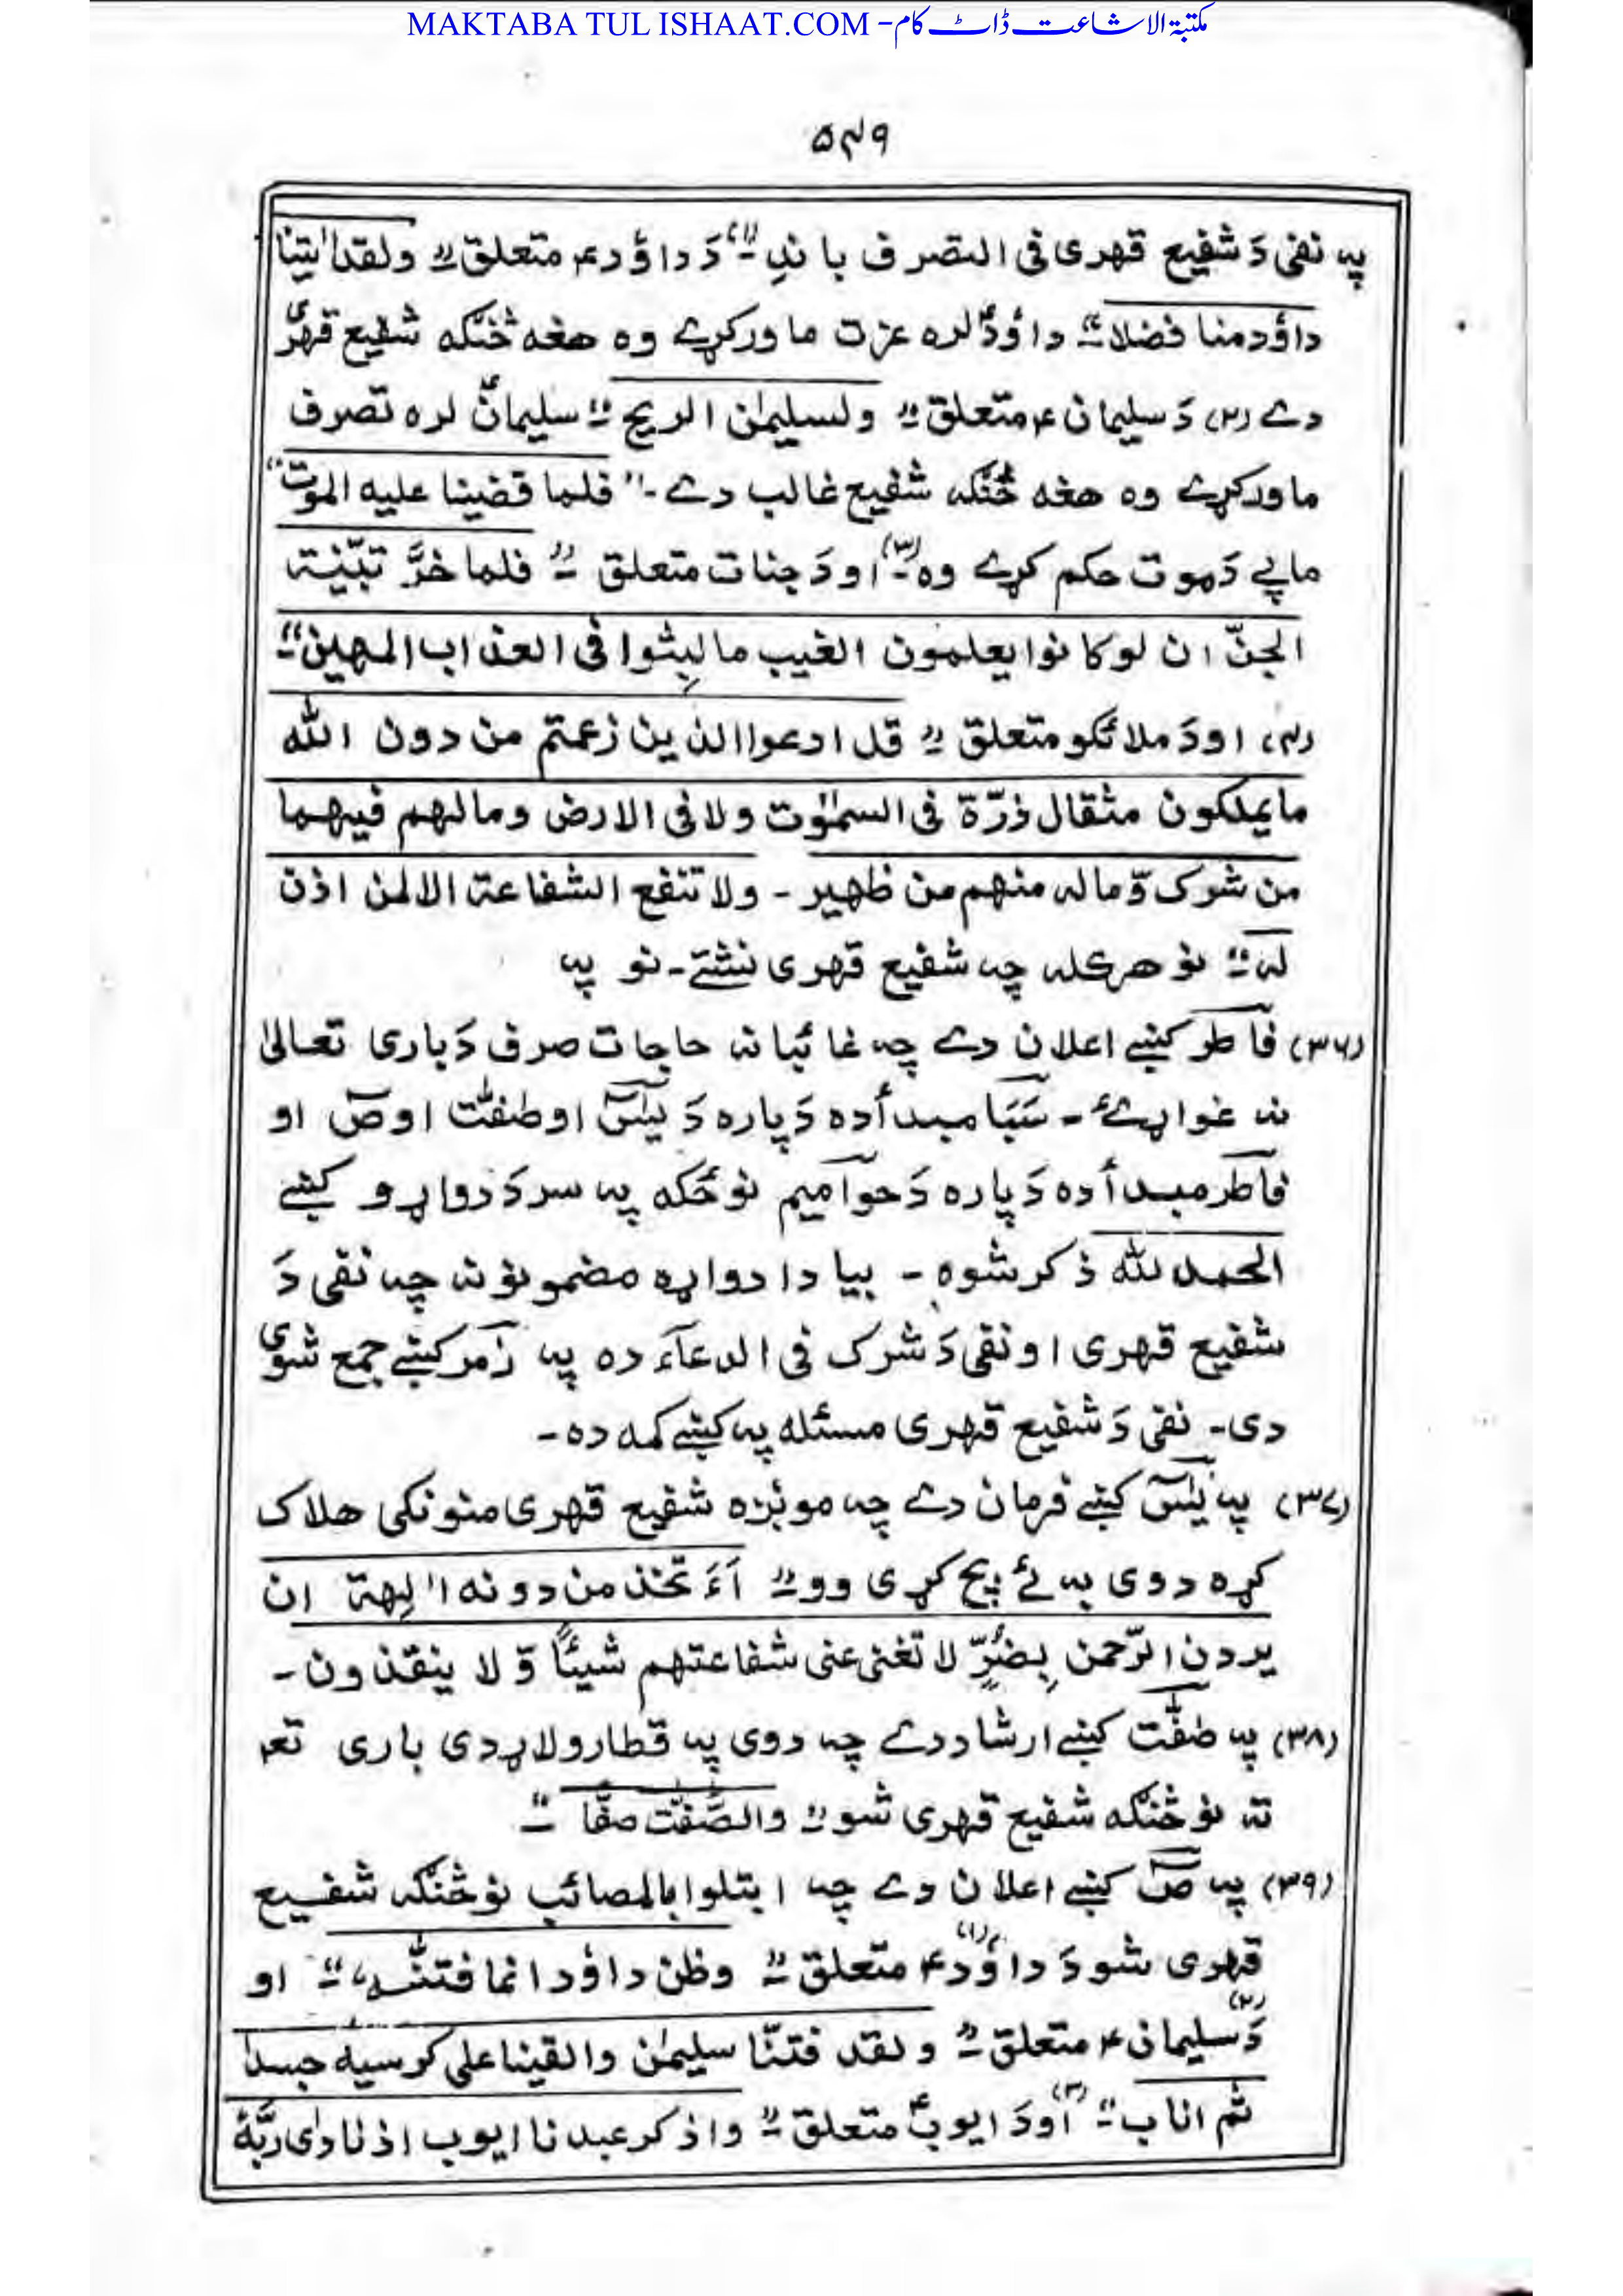 MAKTABA TUL ISHAAT.COM - مکتبۃ الاشاعت ڈاٹ کام
۵۴۹
په نفی دَ شفیع قهری فی التصرف باندِ۔ (۱) دَ داؤد ؑ متعلق " ولقد اٰتینا
داؤد منا فضلا " داؤدؑ لره عزت ما ورکړے وه هغه څنګه شفیع قهری
دے (۲) دَ سلیمان ؑ متعلق " ولسلیمٰن الریح " سلیمانؑ لره تصرف
ما ورکړے وه هغه څنګه شفیع غالب دے۔ " فلما قضینا علیه الموت "
ماپے دَ موت حکم کړے وه۔ (۳) او دَ جنات متعلق " فلما خرَّ تبیّنت
الجنّ ان لو کانوا یعلمون الغیب ما لبِثوا فی العذاب المهین "
(۴) او دَ ملائکو متعلق " قل ادعوا الذین زعمتم من دون الله
ما یملکون مثقال ذرّة فی السمٰوٰت ولا فی الارض وما لهم فیهما
من شرک وّما له منهم من ظهیر۔ ولا تنفع الشفاعة الا لمن اذن
له " نو هرکله چه شفیع قهری نشتے۔ نو په
(۳۶) فاطر کښے اعلان دے چه غائبانه حاجات صرف دَ باری تعالیٰ
نه غواړئ۔ سَبَا مبدأ ده دَپاره دَ یٰسٓ او صٰفّٰت او صٓ او
فاطر مبدأ ده دَپاره دَ حوامیم نو ځکه په سر دَ دواړو کښے
الحمد لله ذکر شوه۔ بیا دا دواړه مضمونونه چه نفی دَ
شفیع قهری او نفی دَ شرک فی الدعآء ده په زمر کښے جمع شوی
دی۔ نفی دَ شفیع قهری مسئله په کښے کمه ده۔
(۳۷) په یٰسٓ کښے فرمان دے چه مونږه شفیع قهری منونکی هلاک
کړه دوی به ئے بچ کړی وو " ءَاَتخذ من دونه اٰلِهة ان
یردن الرّحمن بِضُرٍّ لا تغن عنی شفاعتهم شیئًا وّ لا ینقذون۔
(۳۸) په صٰفّٰت کښے ارشاد دے چه دوی په قطار ولاړ دی باری تعه
ته نو څنګه شفیع قهری شو " والصّٰفّٰت صفّا "
(۳۹) په صٓ کښے اعلان دے چه ابتلوا بالمصائب نو څنګه شفیع
قهری شو دَ (۱) داؤد ؑ متعلق " وظن داؤد انما فتنّٰه " او
(۲) دَ سلیمان ؑ متعلق " ولقد فتنّا سلیمٰن والقینا علی کرسیه جسدا
ثم اناب " (۳) او دَ ایوبؑ متعلق " واذکر عبدنا ایوب اذ نادٰی ربَّهٗ